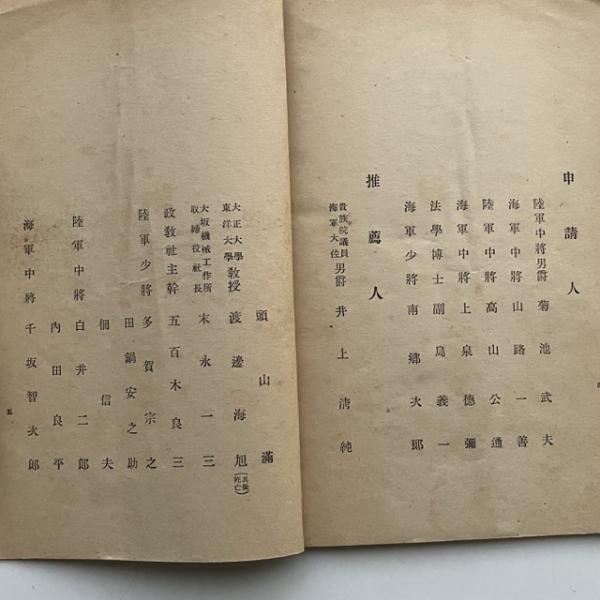 申請人
陸軍中將男爵 菊池武夫
海軍中將 山路一善
陸軍中將 高山公通
海軍中將 上泉德彌
法學博士 副島義一
海軍少將 南鄕次郎
推薦人
貴族院議員
海軍大佐
男爵 井上淸純
頭山滿
大正大學
東洋大學
敎授 渡邊海旭
(其後死亡)
大坂機械工作所
取締役社長
末永一三
政敎社主幹 五百木良三
陸軍少將 多賀宗之
田鍋安之助
佃信夫
陸軍中將 白井二郎
內田良平
海軍中將 千坂智次郎
五